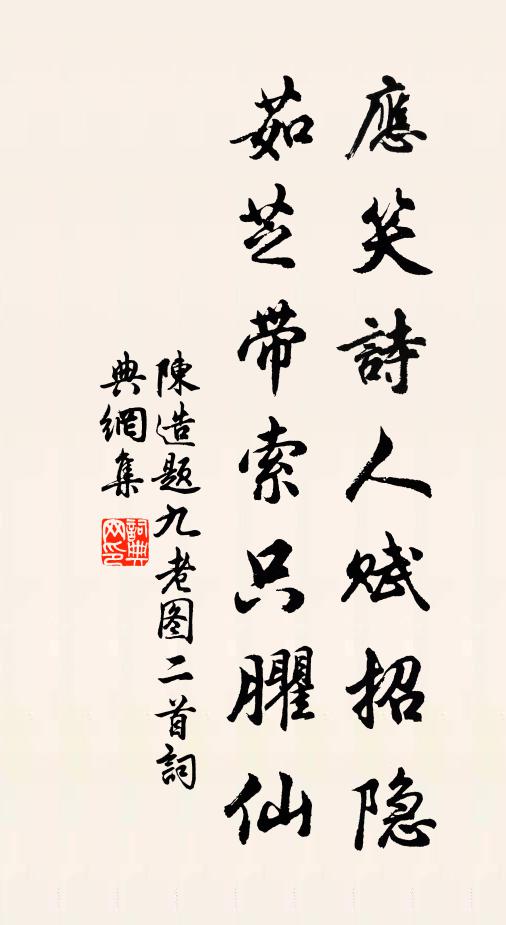 應笑詩人赋招隐
茹芝带索只臞仙
陳造題九老图二首詞
典網集
詞典网印